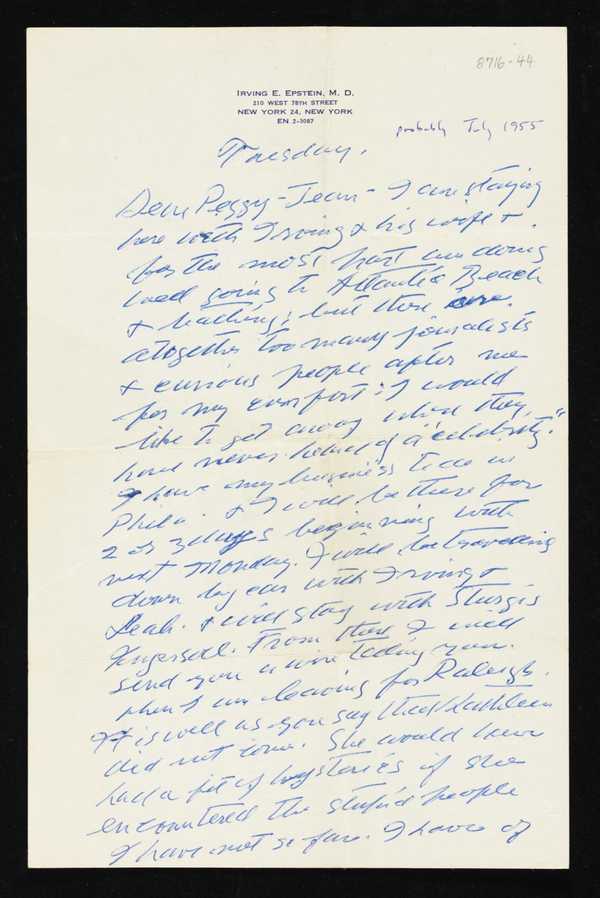 8716-44
IRVING E. EPSTEIN, M. D.
210 WEST 78TH STREET
NEW YORK 24, NEW YORK
EN 2-3087
probably July 1955
Tuesday.
Dear Peggy-Jean - I am staying
here with Irving & his wife &
for the most part am doing
well going to Atlantic Beach
& bathing; but there are
altogether too many journalists
& curious people after me
for my comfort: I would
like to get away where they
have never heard of a "celebrity."
I have my business to do in
Phila. & I will be there for
2 or 3 days beginning with
next Monday. I will be traveling
down by car with Irving &
Leah. & will stay with Sturgis
Ingersoll. From there I will
send you a wire telling you
when I am leaving for Raleigh.
It is well as you say that Kathleen
did not come. She would have
had a fit of hysterics if she
encountered the stupid people
I have met so far. I have of